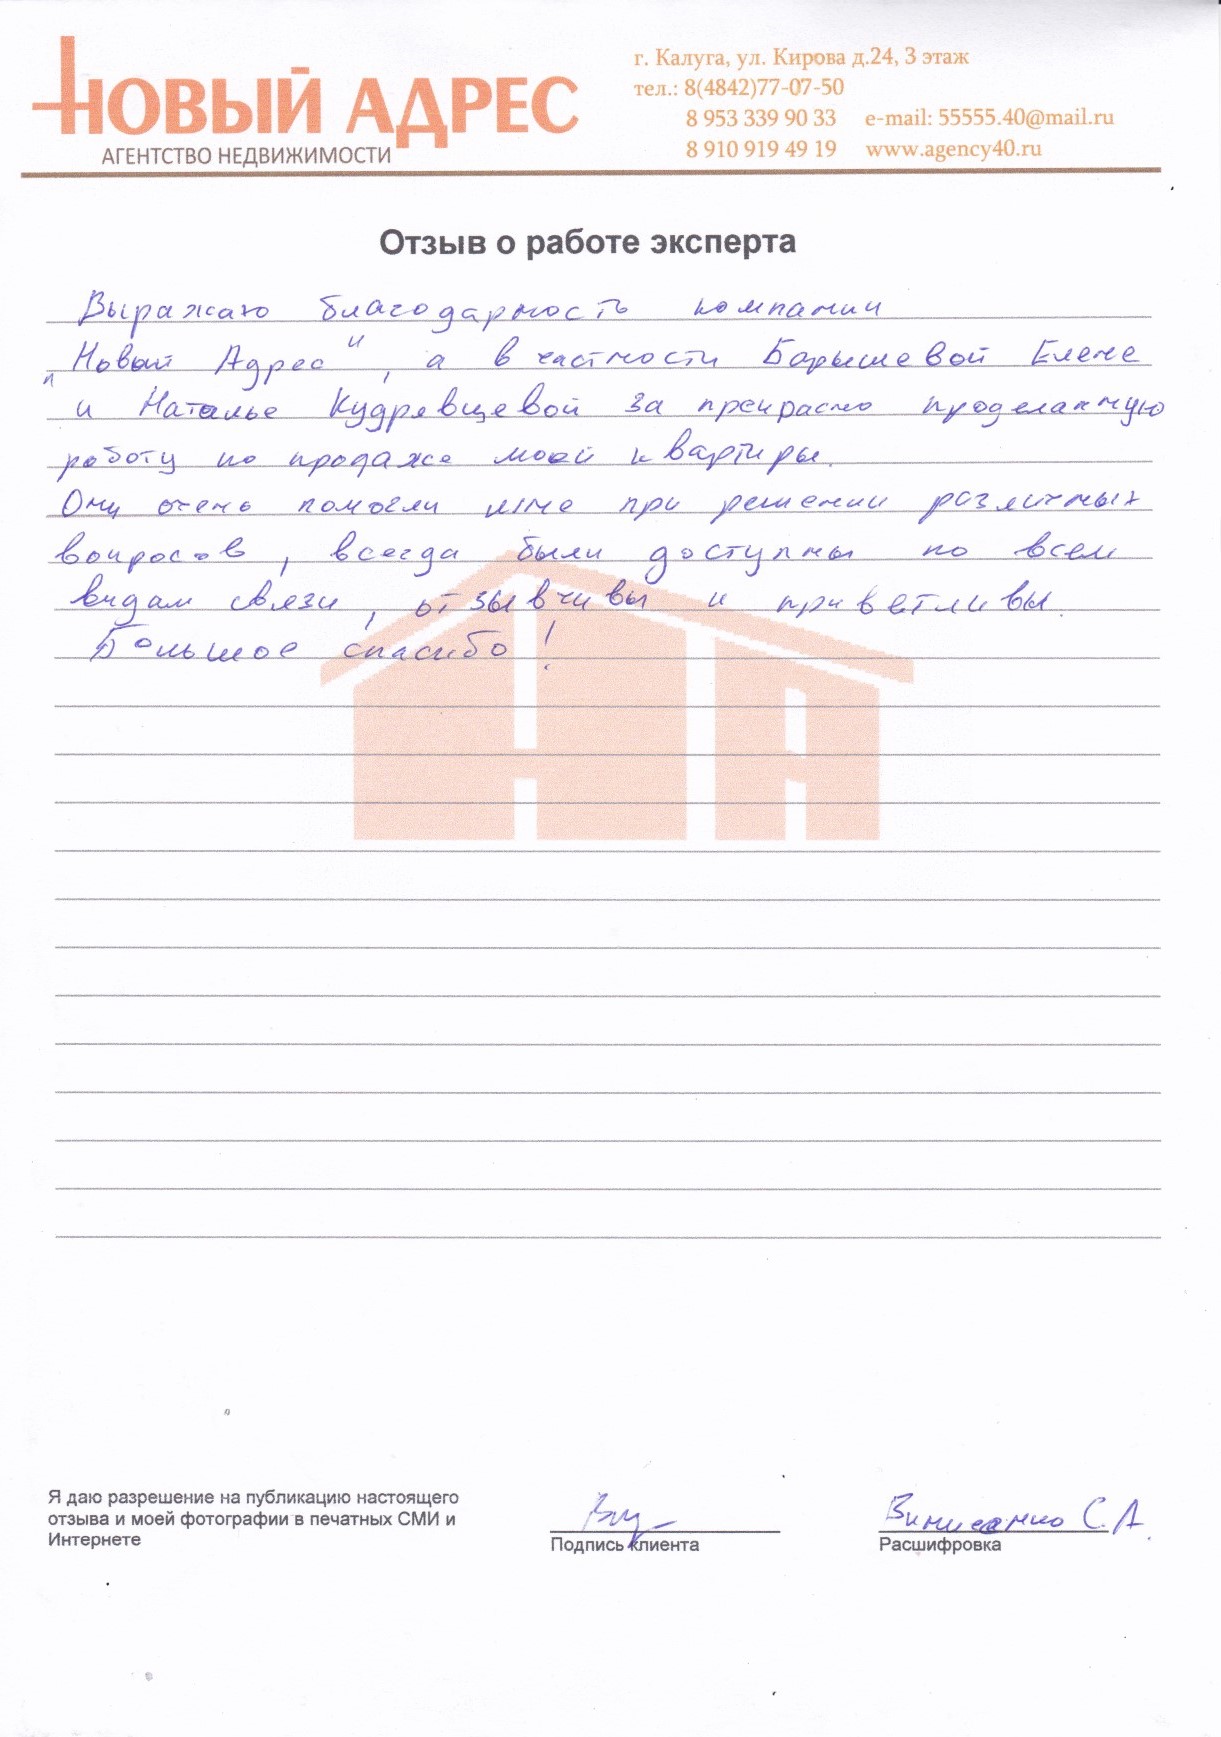 НОВЫЙ АДРЕС
АГЕНТСТВО НЕДВИЖИМОСТИ
г. Калуга, ул. Кирова д.24, 3 этаж
тел.: 8(4842)77-07-50
8 953 339 90 33 e-mail: 55555.40@mail.ru
8 910 919 49 19 www.agency40.ru
Отзыв о работе эксперта
Выражаю благодарность компании
„Новый Адрес", а в частности Барышевой Елене
и Наталье Кудрявцевой за прекрасно проделанную
работу по продаже моей квартиры.
Они очень помогли мне при решении различных
вопросов, всегда были доступны по всем
видам связи, отзывчивы и приветливы.
Большое спасибо!
НА
Я даю разрешение на публикацию настоящего
отзыва и моей фотографии в печатных СМИ и
Интернете
Подпись клиента
С.А.
Расшифровка